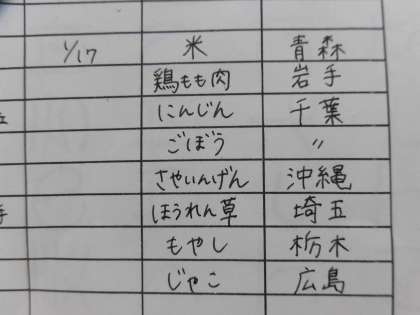 1/17 米 青森
鶏もも肉 岩手
にんじん 千葉
ごぼう 〃
さやいんげん 沖縄
ほうれん草 埼玉
もやし 栃木
じゃこ 広島